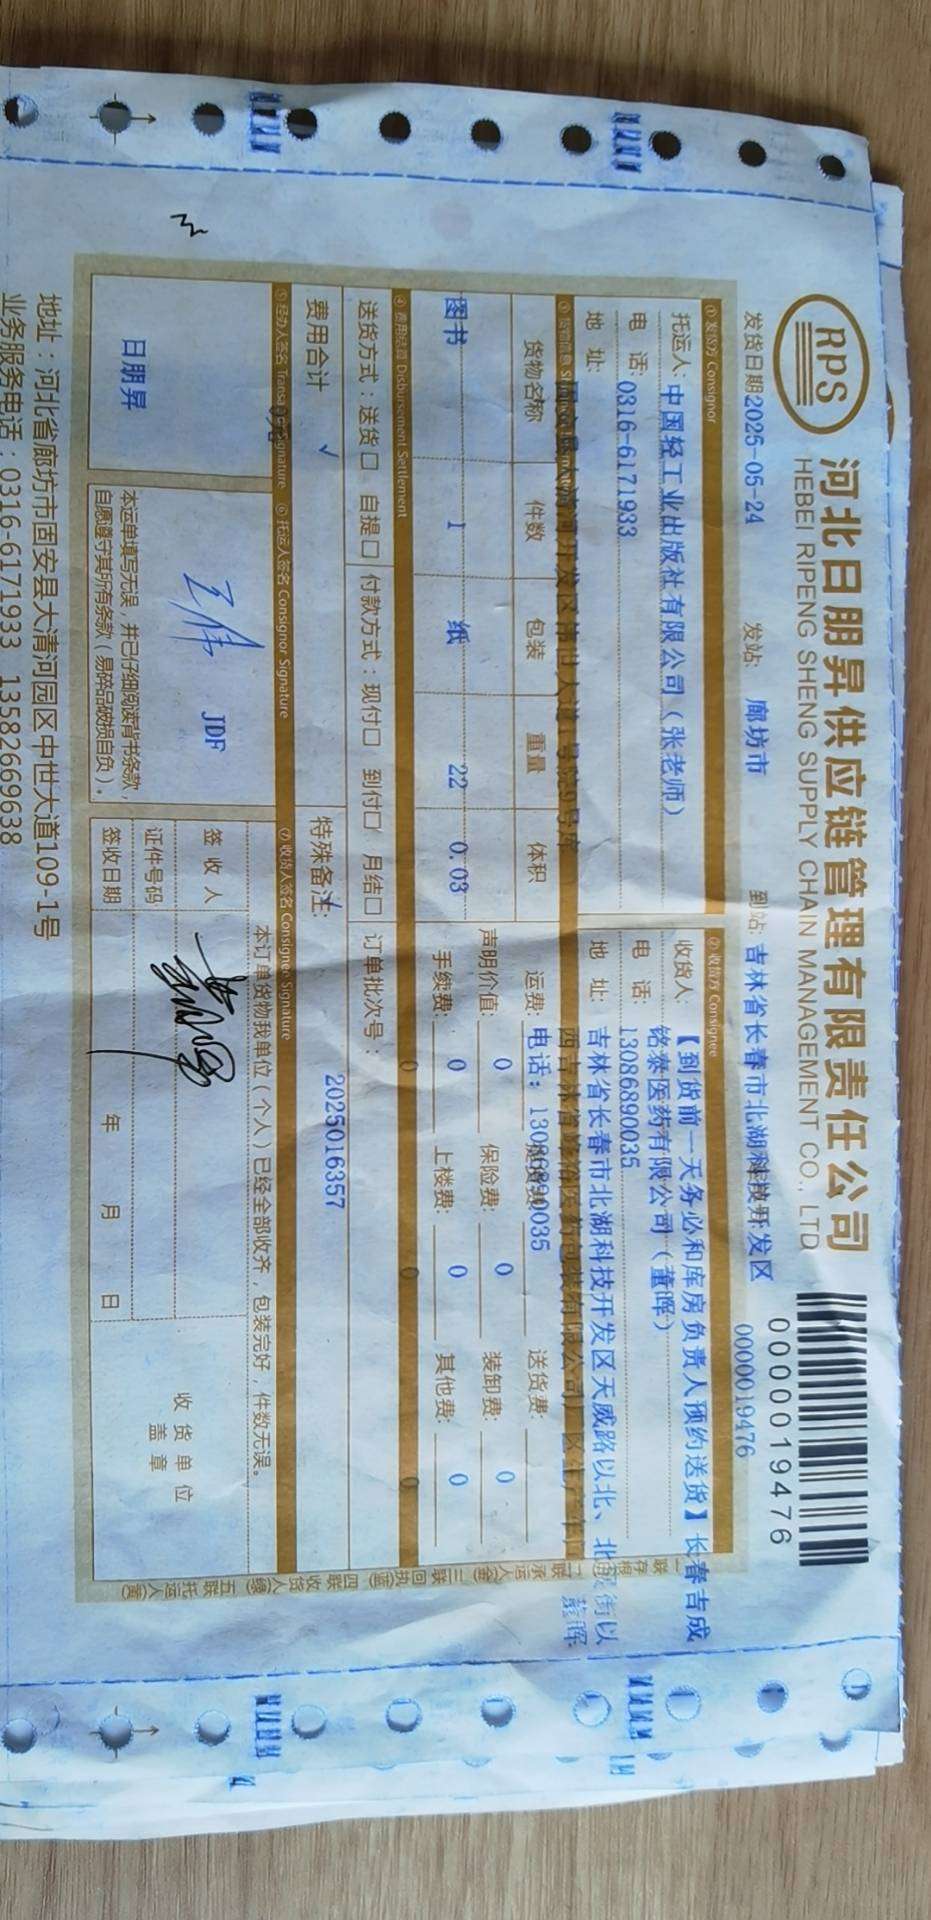 RPS
河北日朋昇供应链管理有限责任公司
HEBEI RIPENG SHENG SUPPLY CHAIN MANAGEMENT CO., LTD
0000019476
发货日期2025-05-24 发站: 廊坊市 到站: 吉林省长春市北湖科技开发区 0000019476
①发货方 Consignor ②收货方 Consignee
托运人: 中国轻工业出版社有限公司（张老师）
收货人: 【到货前一天务必和库房负责人预约送货】长春吉成
铭泰医药有限公司（董晖）
电 话: 0316-6171933
电 话: 13086890035
地 址:
地 址: 吉林省长春市北湖科技开发区天威路以北、北 街以
董晖
电话: 13086890035
货物名称 件数 包装 重量 体积
图书 1 纸 22 0.03
运费: 送货费:
声明价值: 0 保险费: 0 装卸费: 0
手续费: 0 上楼费: 0 其他费: 0
④费用结算 Disbursement Settlement 0 0 0
送货方式：送货□ 自提□ 付款方式：现付□ 到付□ 月结□ 订单批次号：
费用合计 √ 特殊备注: 2025016357
⑤经办人签名 Transactor Signature ⑥托运人签名 Consignor Signature ⑦收货人签名 Consignee Signature
日朋昇
王伟 JDF
本运单填写无误，并已仔细阅读背书条款，
自愿遵守其所有条款（易碎品破损自负）。
本订单货物我单位（个人）已经全部收齐，包装完好，件数无误。
签 收 人
证件号码
签收日期 年 月 日
收 货 单 位
盖 章
地址：河北省廊坊市固安县大清河园区中世大道109-1号
业务服务电话：0316-6171933 13582669638